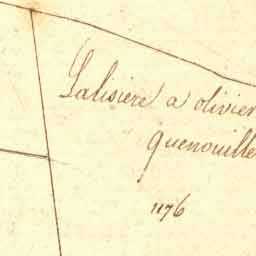 Lalisiere a olivier
quenouille
1176